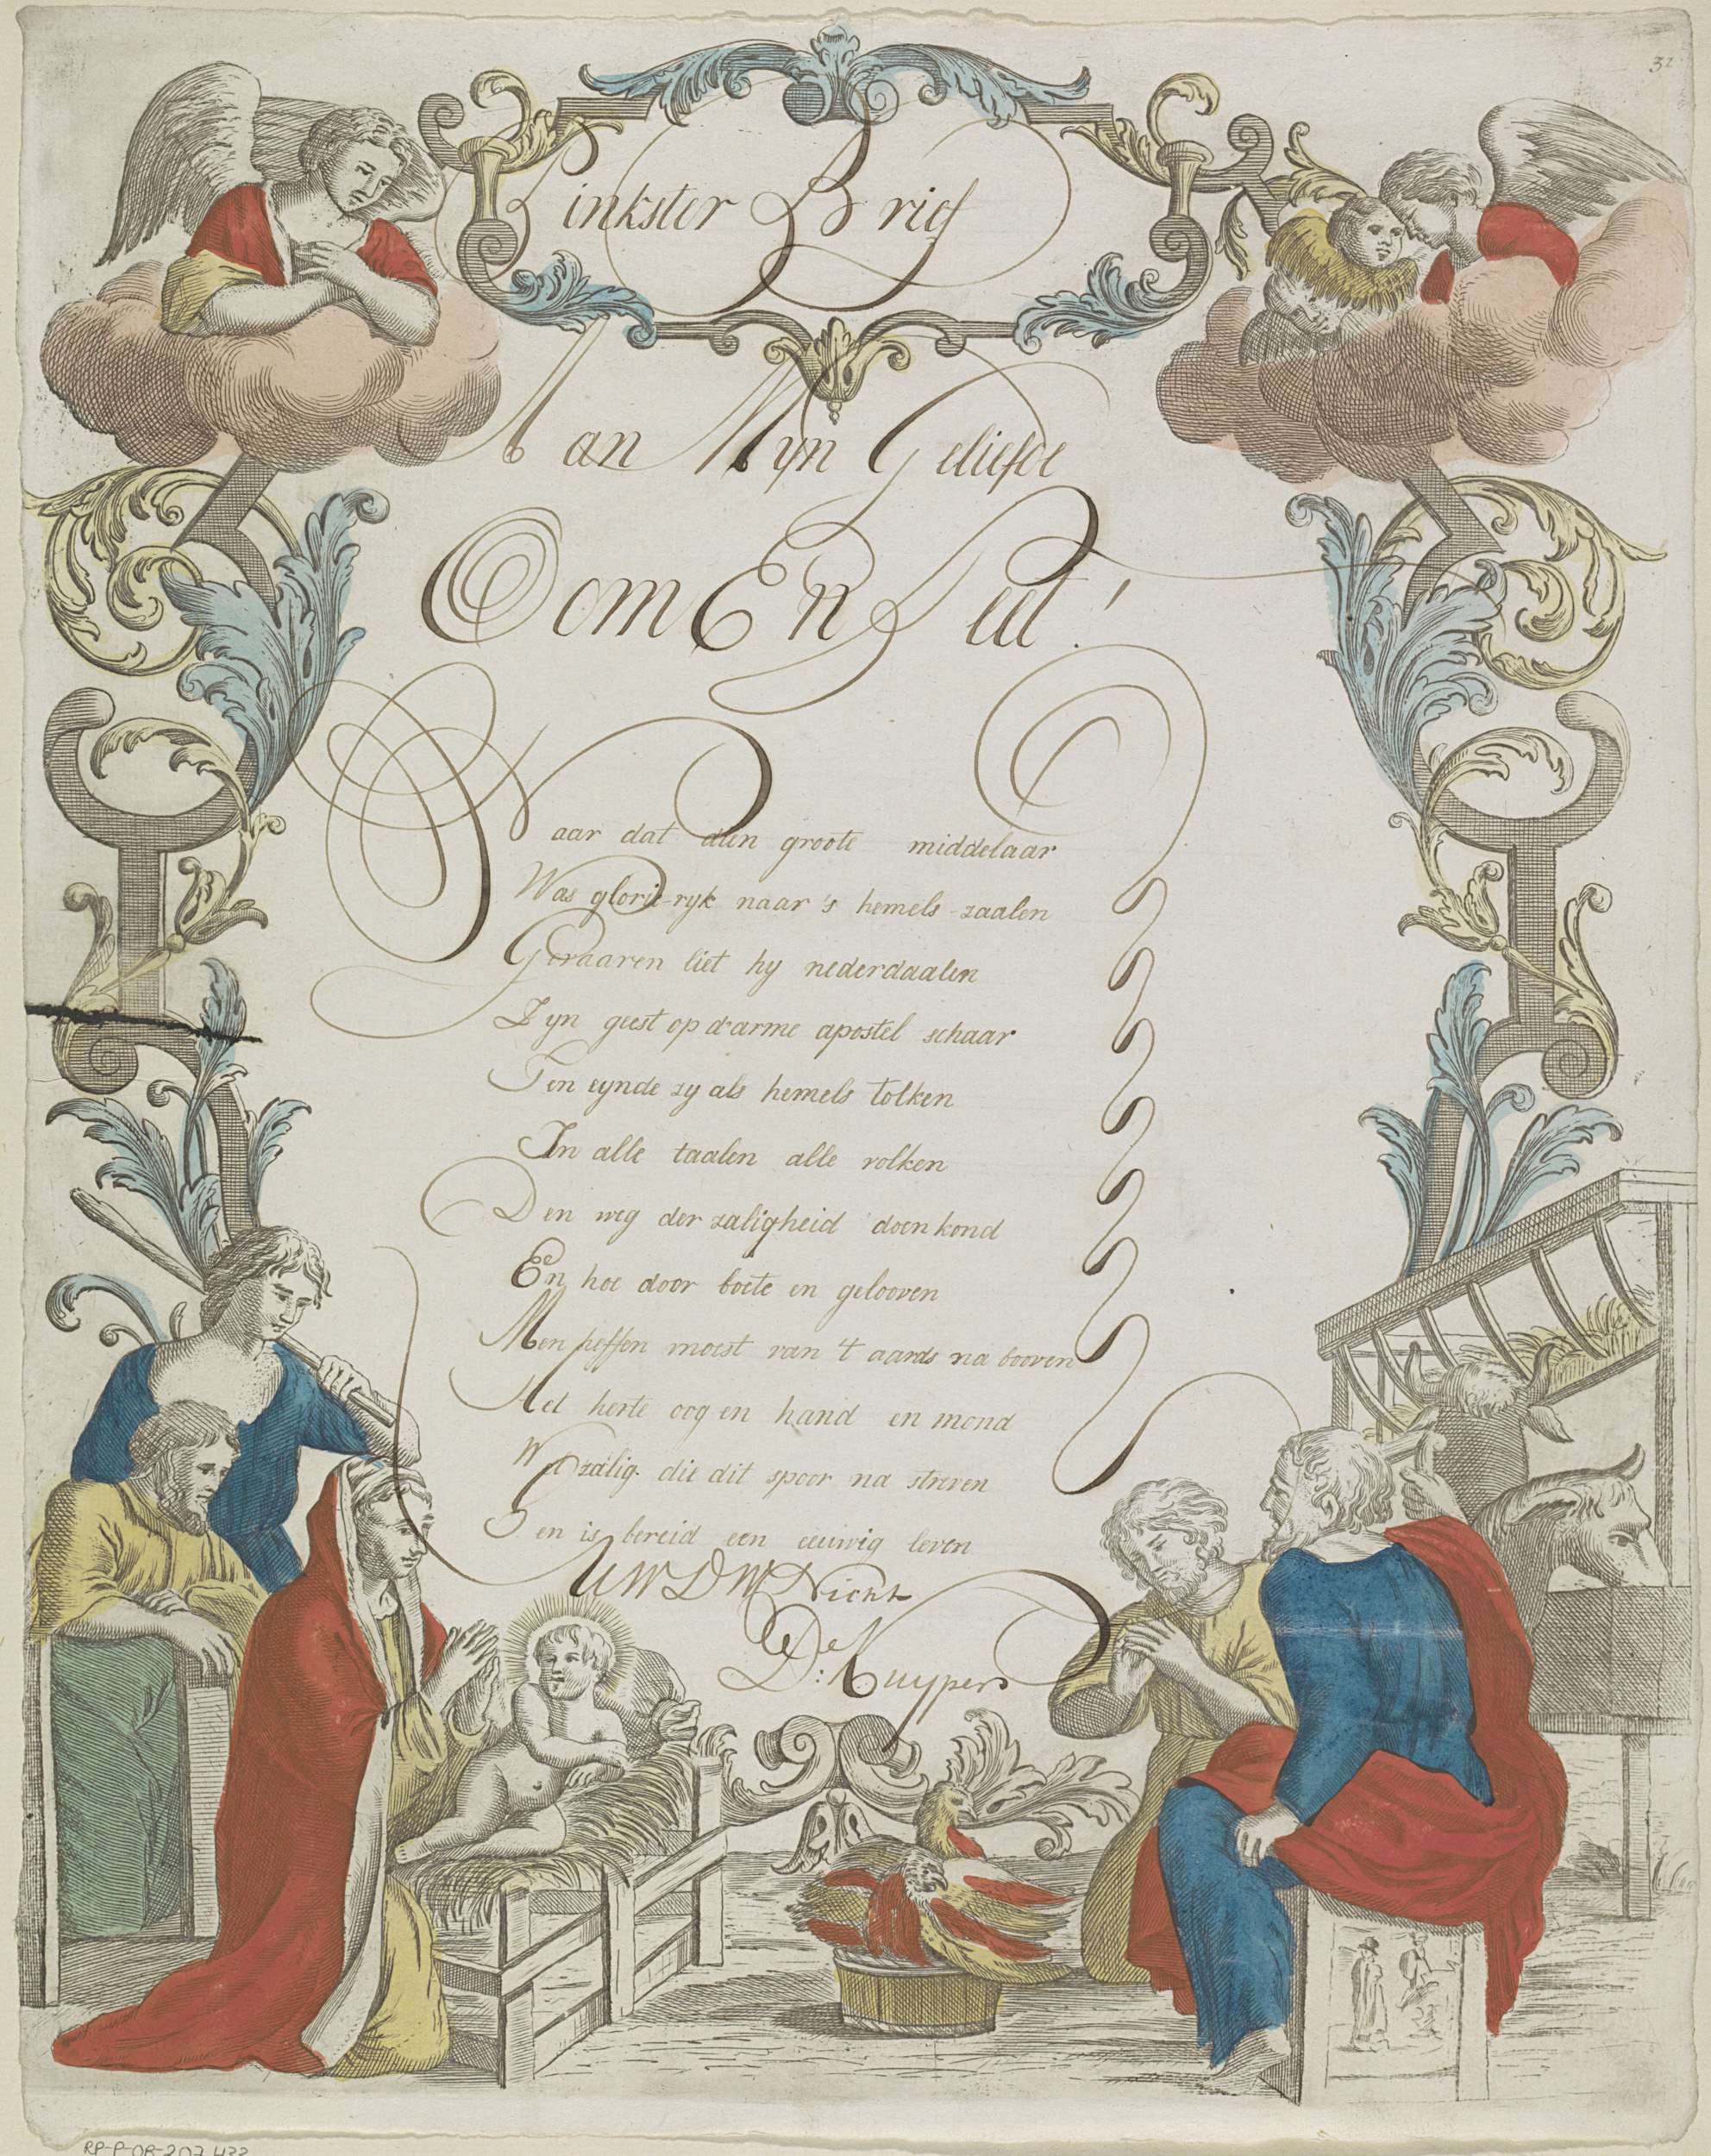 32
Pinkster Brief
Aan Myn Geliefde
Oom En Peet!
Naar dat den groote middelaar
Was glorie-ryk naar 's hemels-zaalen
Gevaaren liet hy nederdaalen
Zyn geest op d'arme apostel schaar
Ten eynde zy als hemels tolken
In alle taalen alle volken
Den weg der zaligheid doen kond
En hoe door boete en gelooven
Men heffen moest van 't aards na booven
Met herte oog en hand en mond
Wel zalig. die dit spoor na streven
Hen is bereid een eeuwig leven
UWDW Nicht
D: Kuypers
RP-P-OB-207.422